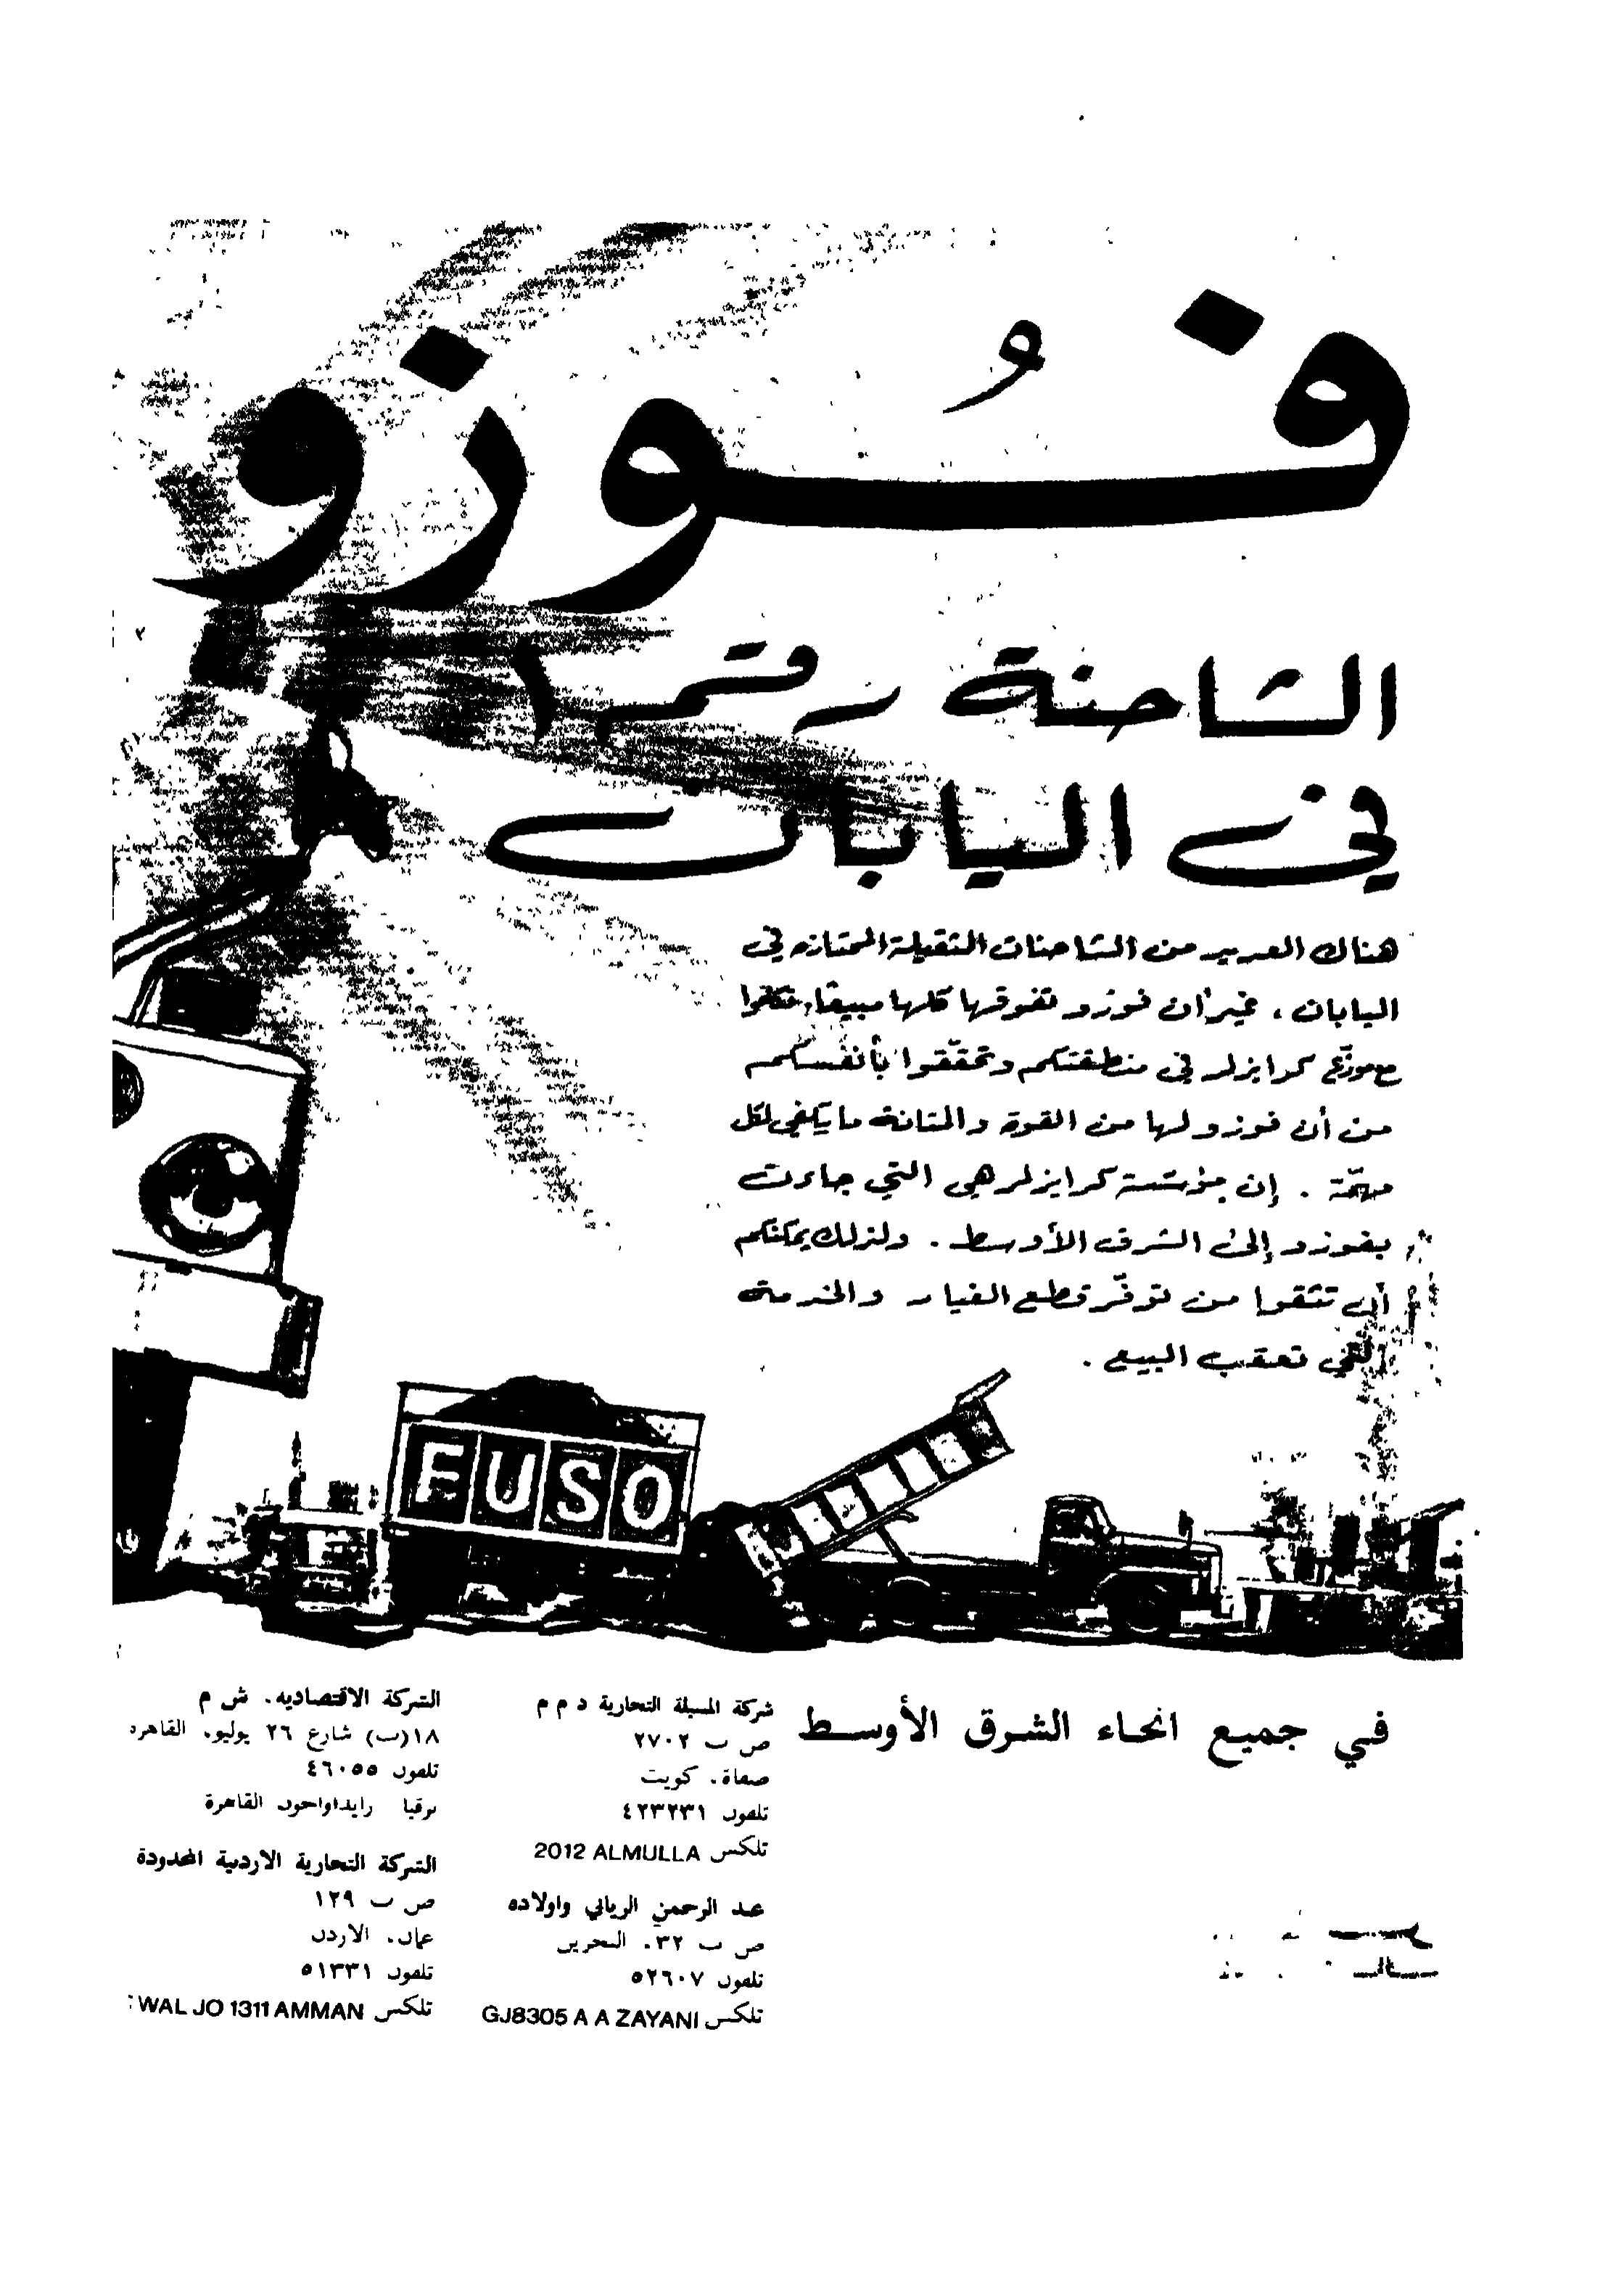 فُوزو
الشاحنة رقم ١
في اليابان
هناك العديد من الشاحنات الثقيلة الممتازة في
اليابان ، غير أن فوزو تفوقها كلها مبيعًا،
موزّع كرايزلر في منطقتكم وتحقّقوا بأنفسكم
من أن فوزو لها من القوة والمتانة ما يكفي لكل
مهمّة . إن مؤسّسة كرايزلر هي التي جاءت
بفوزو إلى الشرق الأوسط . ولذلك يمكنكم
أن تثقوا من توفّر قطع الغيار والخدمة
التي تعقب البيع .
FUSO
في جميع انحاء الشرق الأوسط
شركة المسيلة التجارية ذ م م
ص ب ٢٧٠٢
صفاة. كويت
تلفون ٤٢٣٢٣١
تلكس 2012 ALMULLA
عبد الرحمن الزياني واولاده
ص ب ٣٢. البحرين
تلفون ٥٢٦٠٧
تلكس GJ8305 A A ZAYANI
الشركة الاقتصاديه. ش م م
١٨(ب) شارع ٢٦ يوليو. القاهره
تلفون ٤٦٠٥٥
برقيا القاهرة
الشركة التجارية الاردنية المحدودة
ص ب ١٢٩
عمان. الاردن
تلفون ٥١٣٣١
تلكس WAL JO 1311 AMMAN